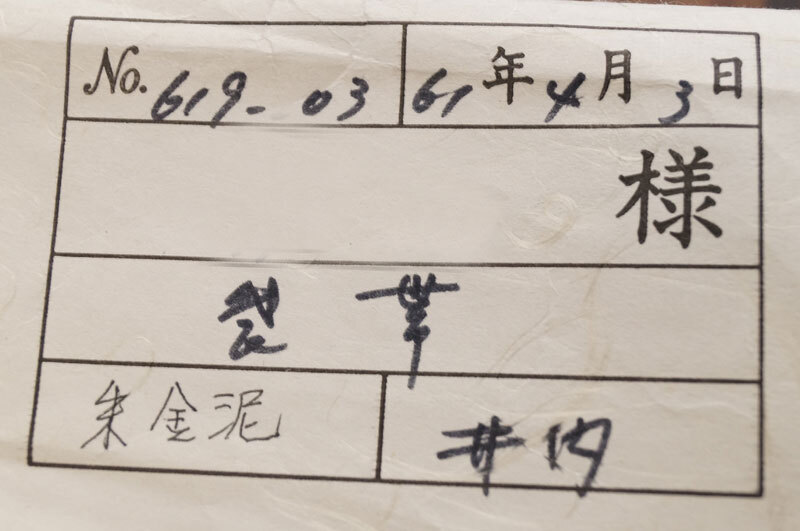 No. 619-03 61年4月3日
様
袋帯
朱金泥 井内